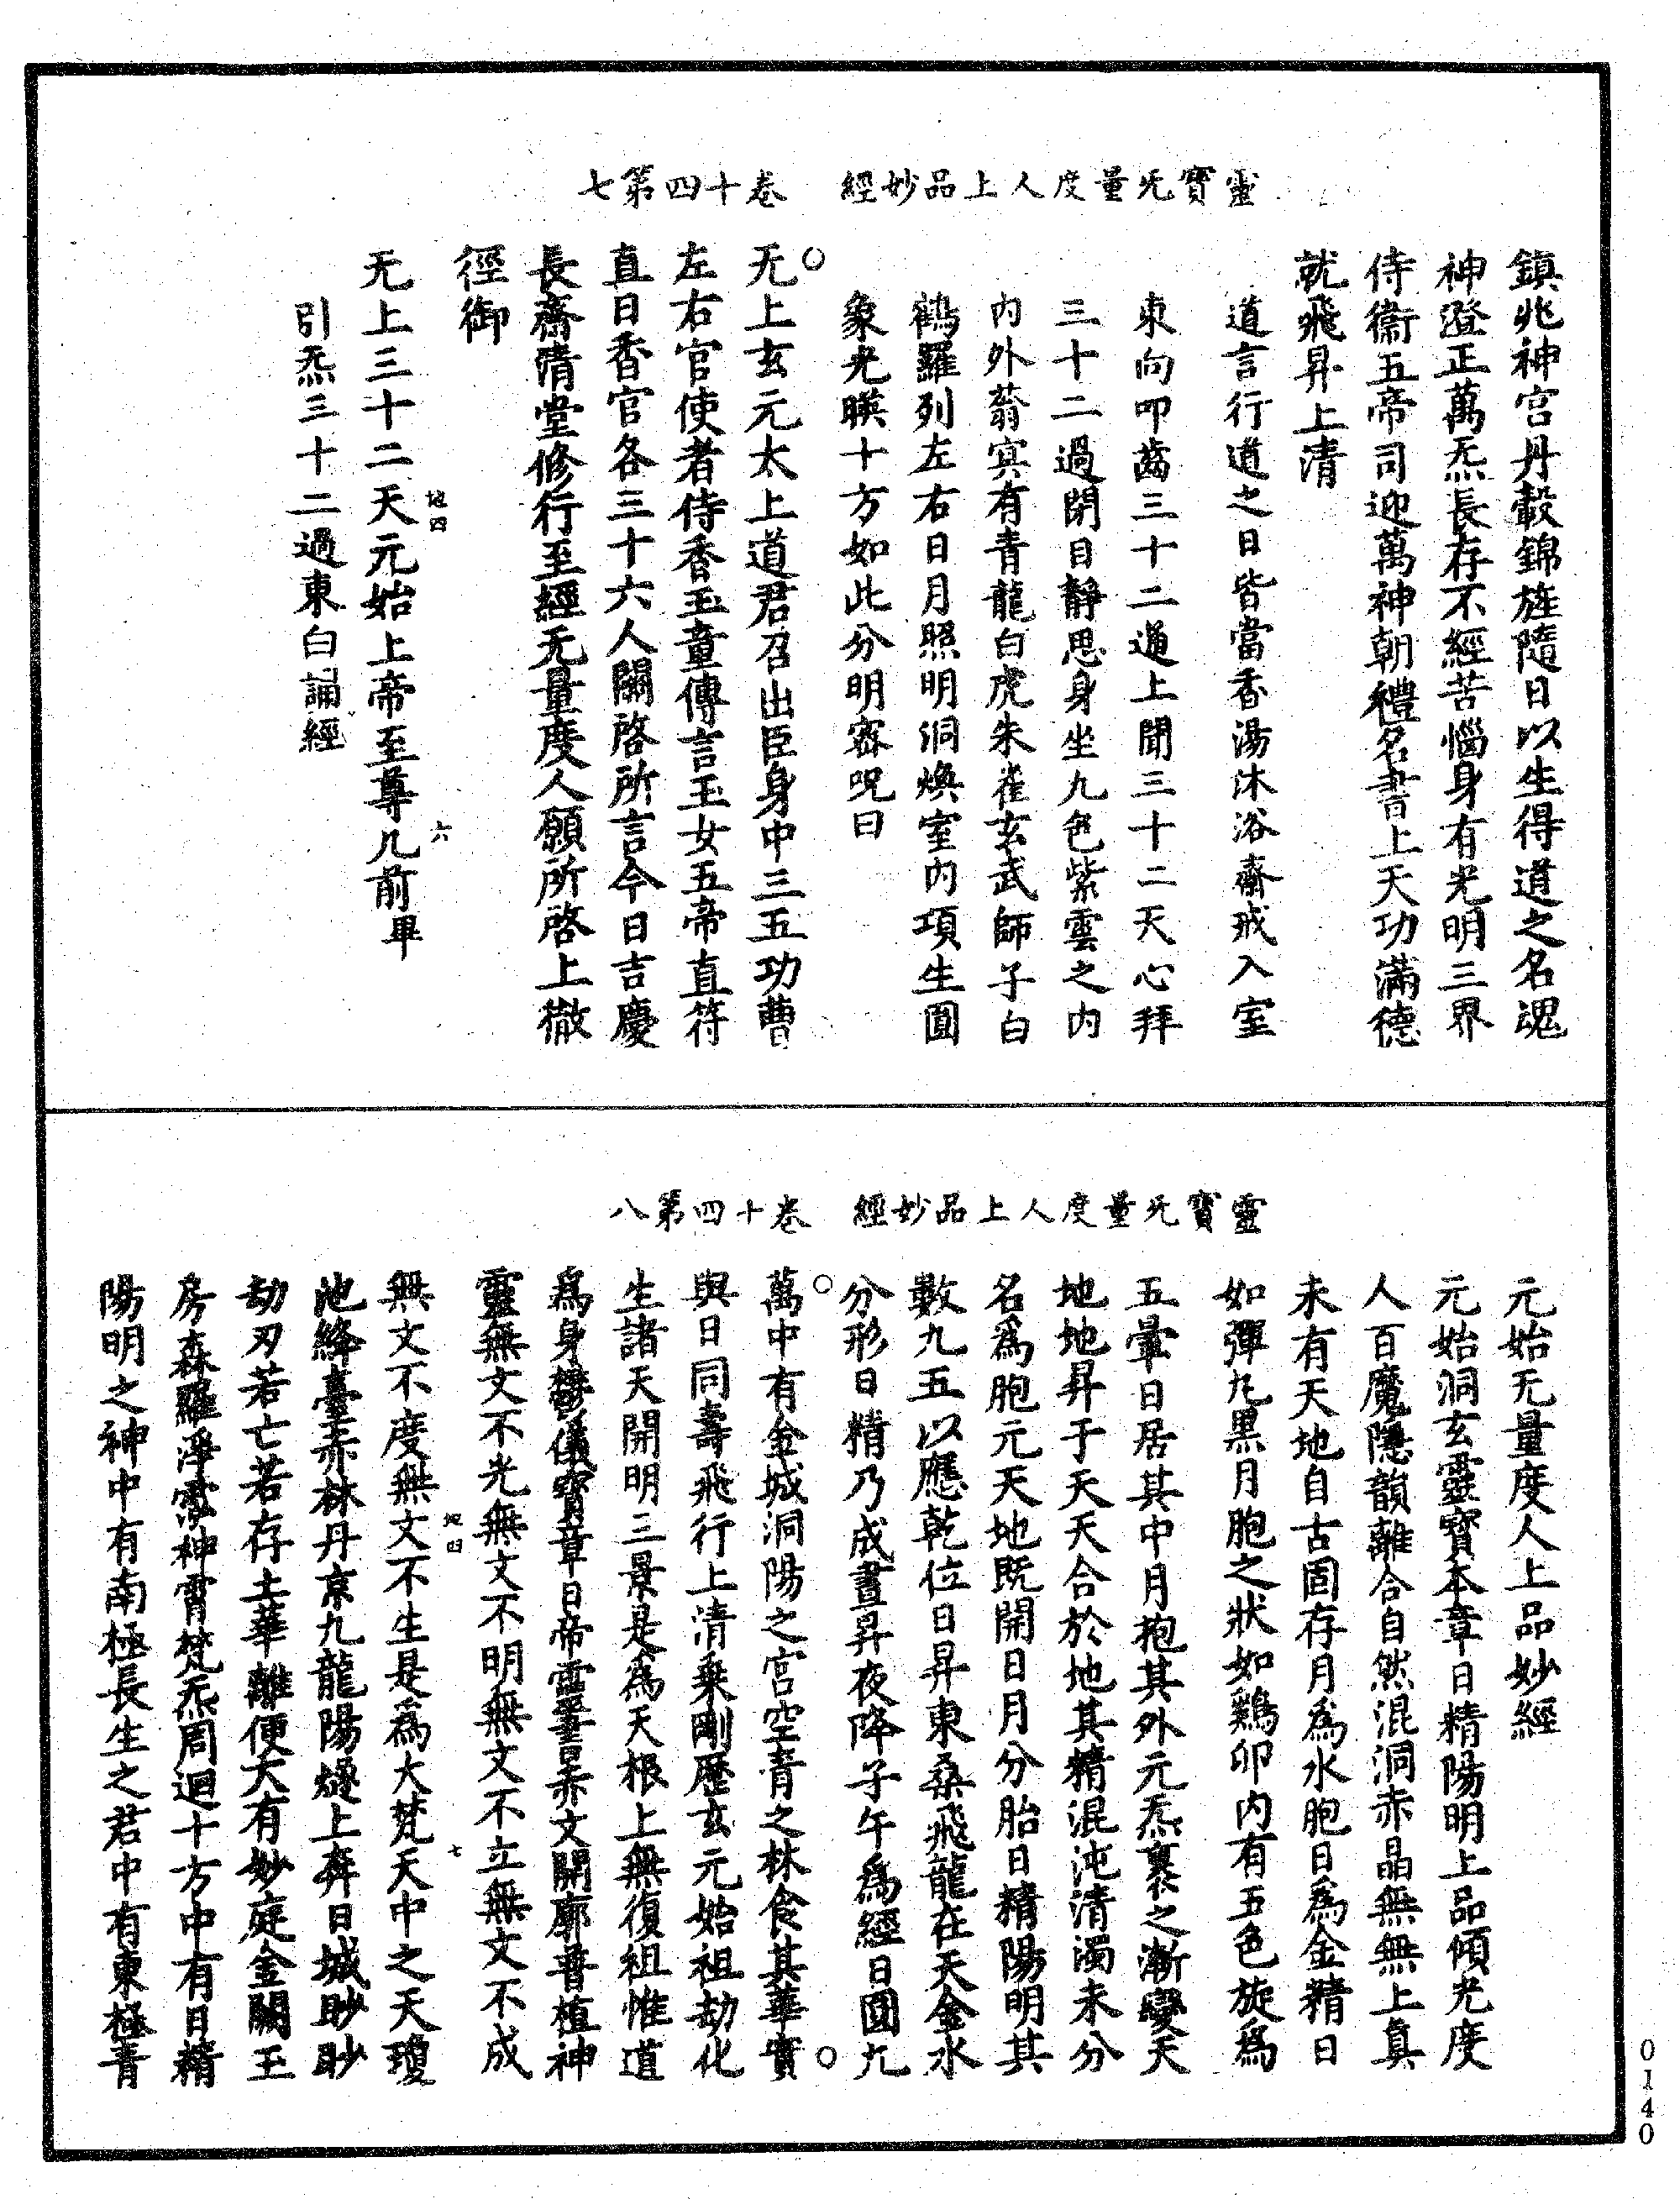 靈寶无量度人上品妙經　卷四十第七
鎮兆神宮丹轂錦旌隨日以生得道之名魂
神澄正萬炁長存不經苦惱身有光明三界
侍衞五帝司迎萬神朝禮名書上天功滿德
就飛昇上清
道言行道之日皆當香湯沐浴齋戒入室
東向叩齒三十二通上聞三十二天心拜
三十二過閉目靜思身坐九色紫雲之內
內外蓊寞有青龍白虎朱雀玄武師子白
鶴羅列左右日月照明洞煥室內項生圓
象光暎十方如此分明密咒曰
○
无上玄元太上道君召出臣身中三五功曹
左右官使者侍香玉童傳言玉女五帝直符
直日香官各三十六人關啓所言今日吉慶
長齋清堂修行至經无量度人願所啓上徹
徑御
地四　六
无上三十二天元始上帝至尊几前畢
引炁三十二過東向誦經
靈寶无量度人上品妙經　卷四十第八
元始无量度人上品妙經
元始洞玄靈寶本章日精陽明上品傾光度
人百魔隱韻離合自然混洞赤晶無無上真
未有天地自古固存月爲水胞日爲金精日
如彈丸黑月胞之狀如鷄卵內有五色旋爲
五暈日居其中月抱其外元炁裹之漸變天
地地昇于天天合於地其精混沌清濁未分
名爲胞元天地既開日月分胎日精陽明其
數九五以應乾位日昇東桑飛龍在天金水
分形日精乃成晝昇夜降子午爲經日圓九
○　○
萬中有金城洞陽之宮空青之林食其華實
與日同壽飛行上清乗剛歷玄元始祖劫化
生諸天開明三景是爲天根上無復祖惟道
爲身鬱儀寶章日帝靈書杲文開廓普植神
靈無文不光無文不明無文不立無文不成
地四　七
無文不度無文不生是爲大梵天中之天瓊
池絳臺赤林丹京九龍陽燧上奔日城眇眇
劫刃若亡若存土華離便大有妙庭金闕玉
房森羅淨泓神霄梵炁周迴十方中有日精
陽明之神中有南極長生之君中有東極青
0140